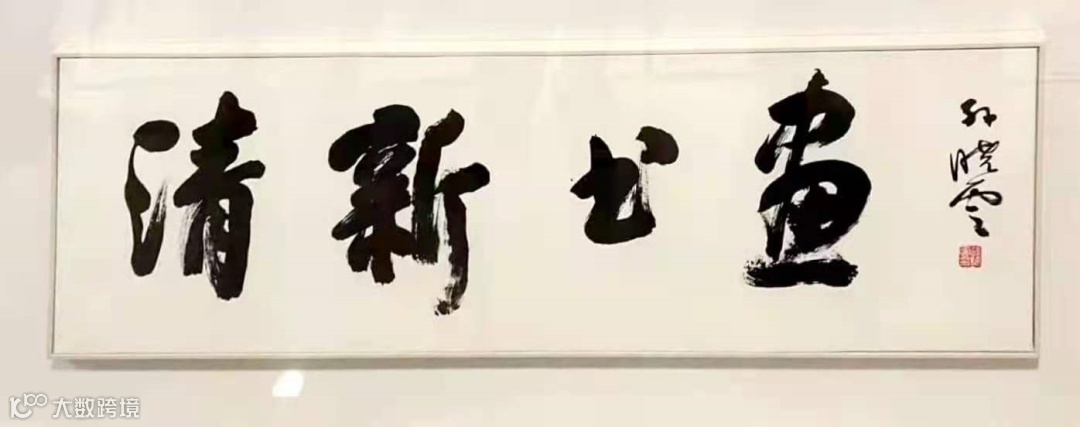 清新书画
孙晓云
大数跨境